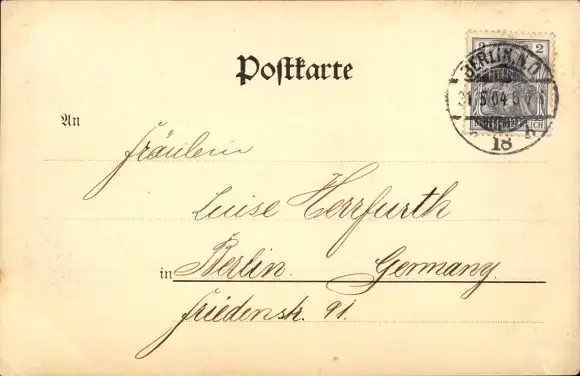 Postkarte
2 2
BERLIN. N.O.
31.5.04.6-7
REICH
18
An
Fräulein
Luise Herrfurth
in Berlin. Germany.
Friedenstr. 91.